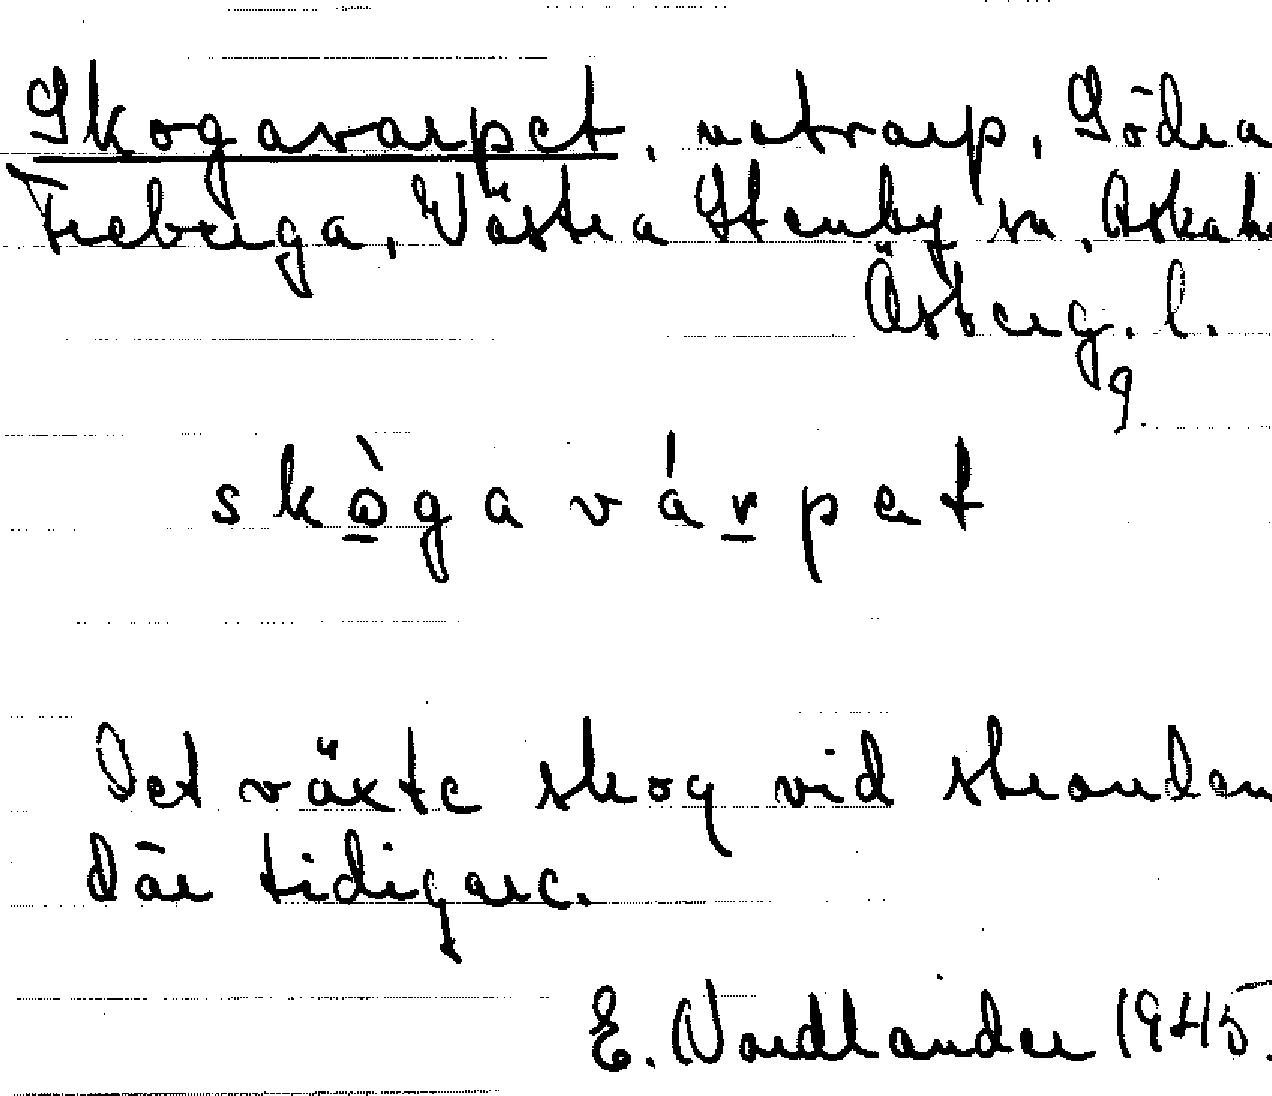 Skogavarpet, notvarp, Södra
Freberga, Västra Stenby sn, Aska h
Österg. l.
9.
sko̱̍gavárpet
Det växte skog vid stranden
där tidigare.
E. Nordlander 1945.